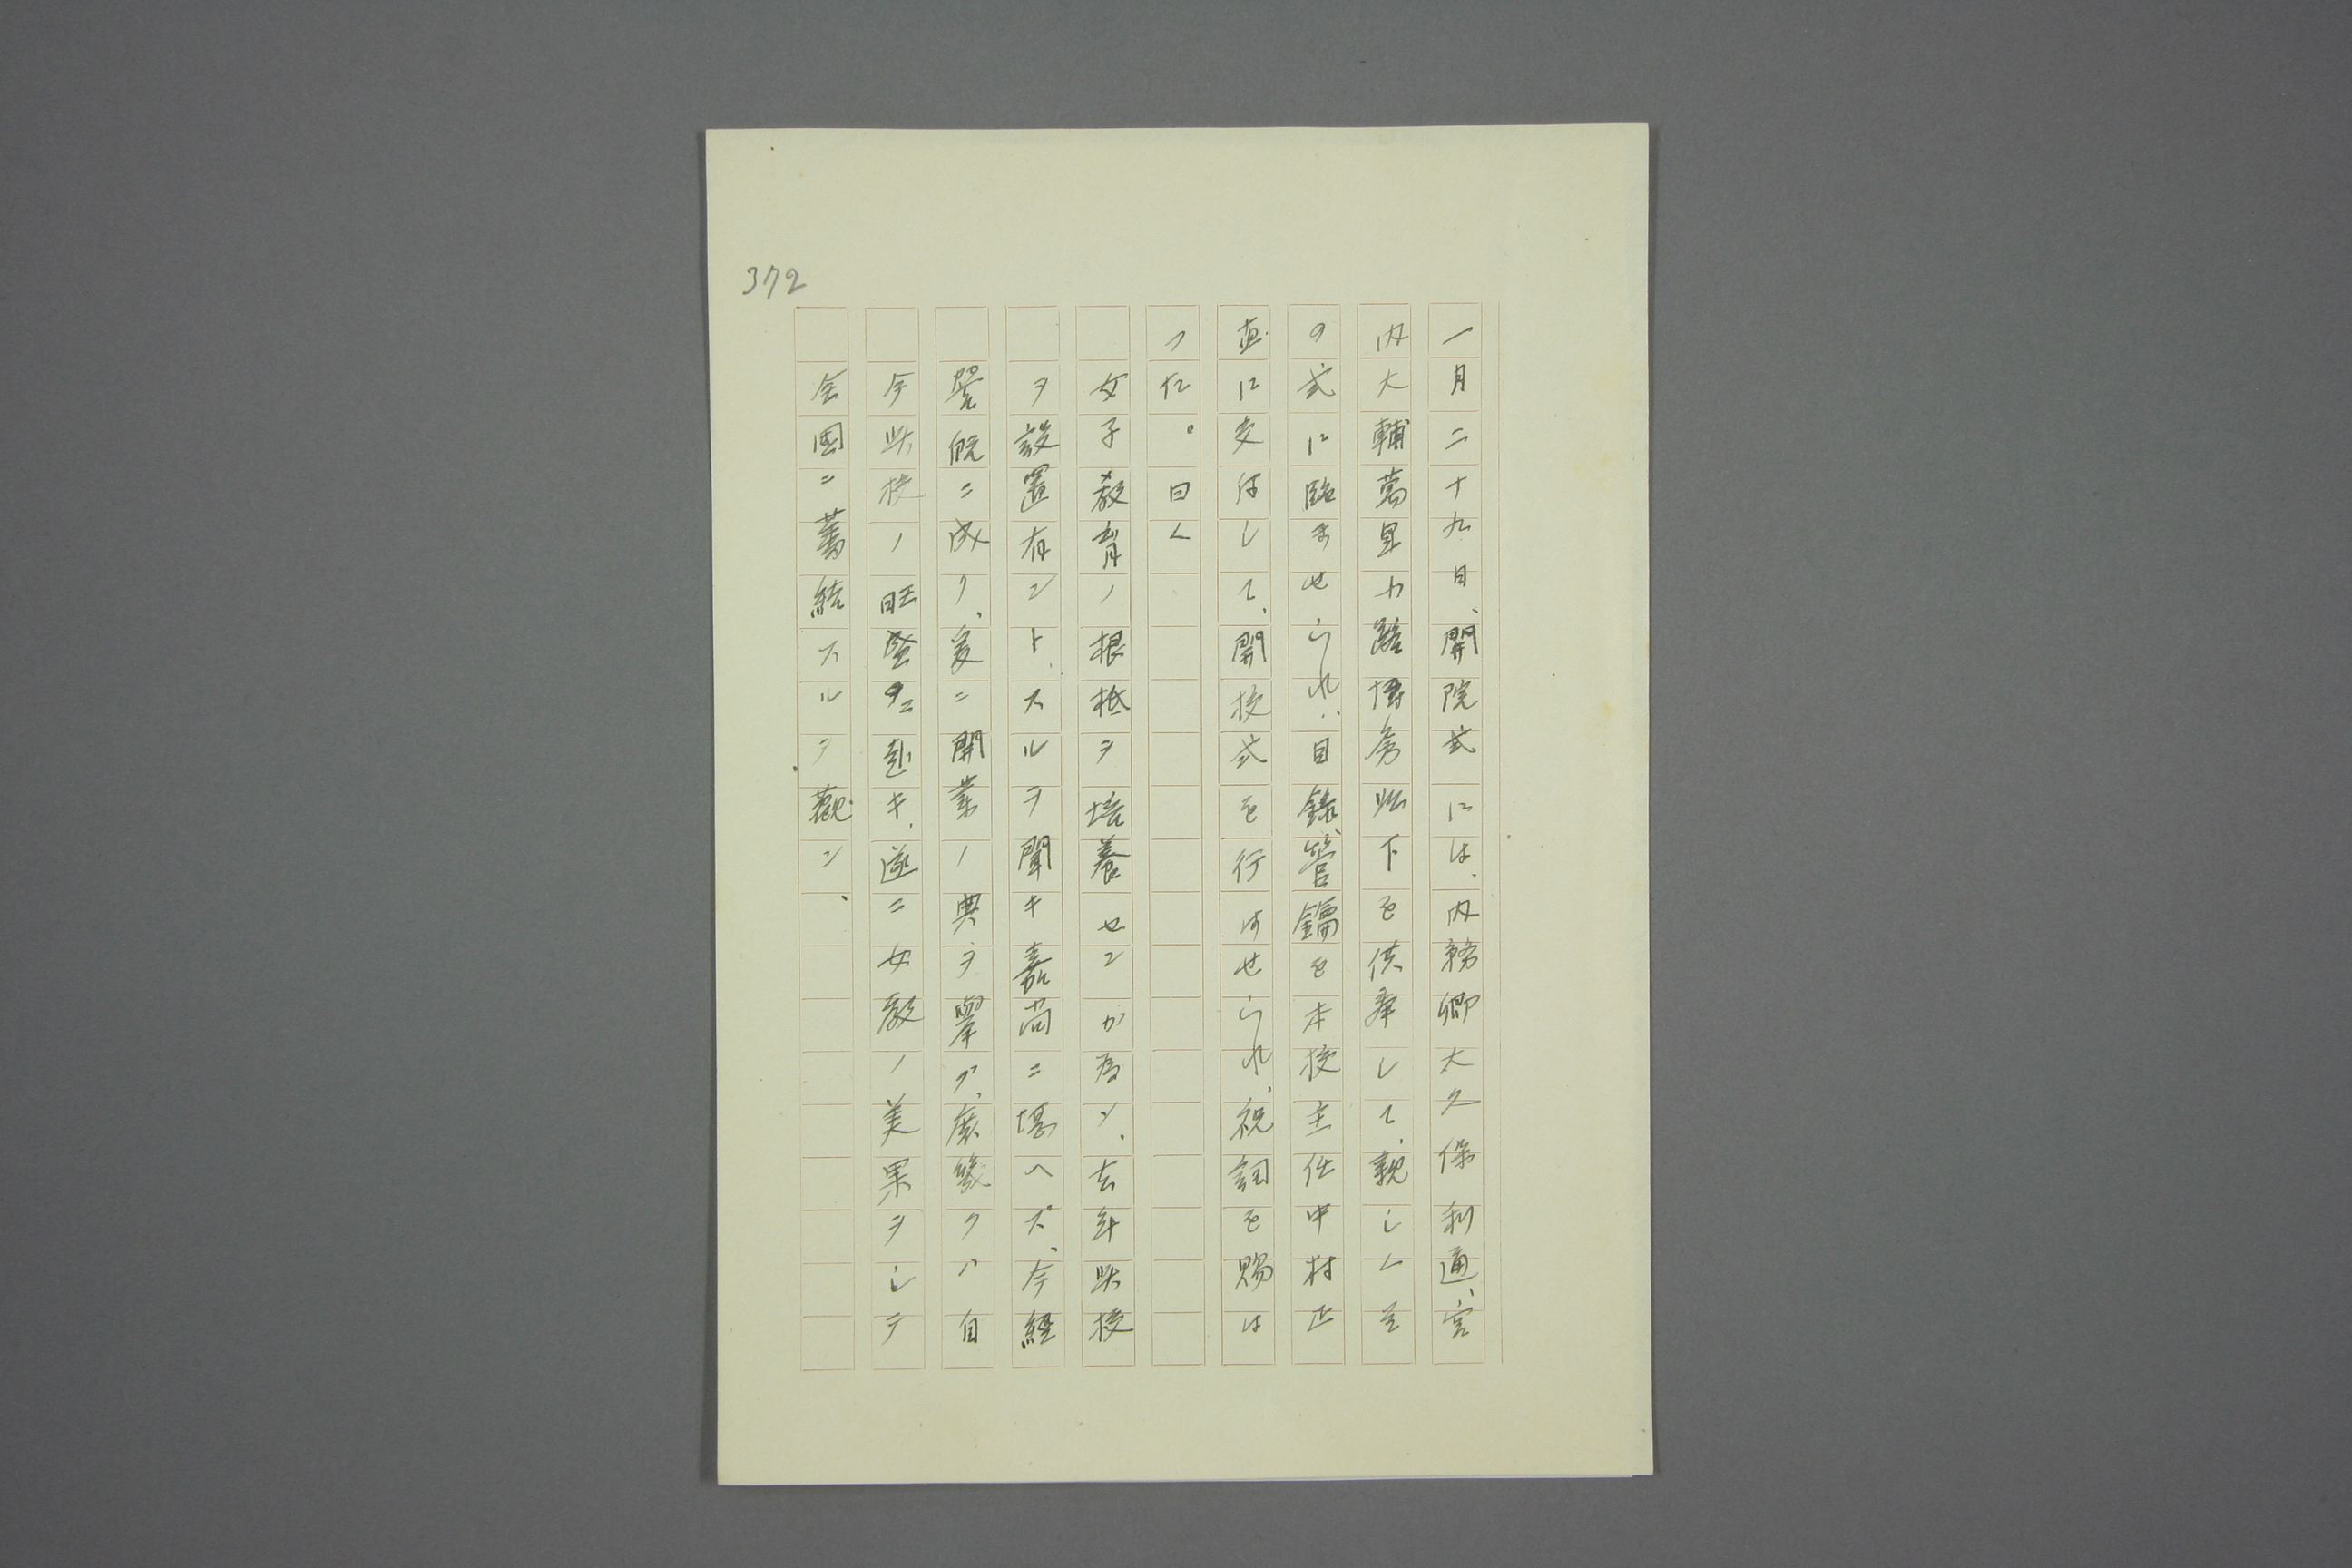 一月二十九日、開院式には、内務卿大久保利通、宮
内大輔萬里小路博房以下を供奉して、親しくそ
の式に臨ませられ、目録、管鑰を本校主任中村正
直に交はして、開校式を行はせられ、祝詞を賜は
つた。曰く
女子教育ノ根柢ヲ培養センガ為メ、去年此校
ヲ設置有ントスルヲ聞キ嘉尚ニ堪ヘズ、今經
營既ニ成リ、爰ニ開業ノ典ヲ擧グ、庶幾クハ自
今此校ノ旺盛ニ赴キ、遂ニ女教ノ美果ヲシテ
全國ニ蕃結スルヲ觀ン、
372